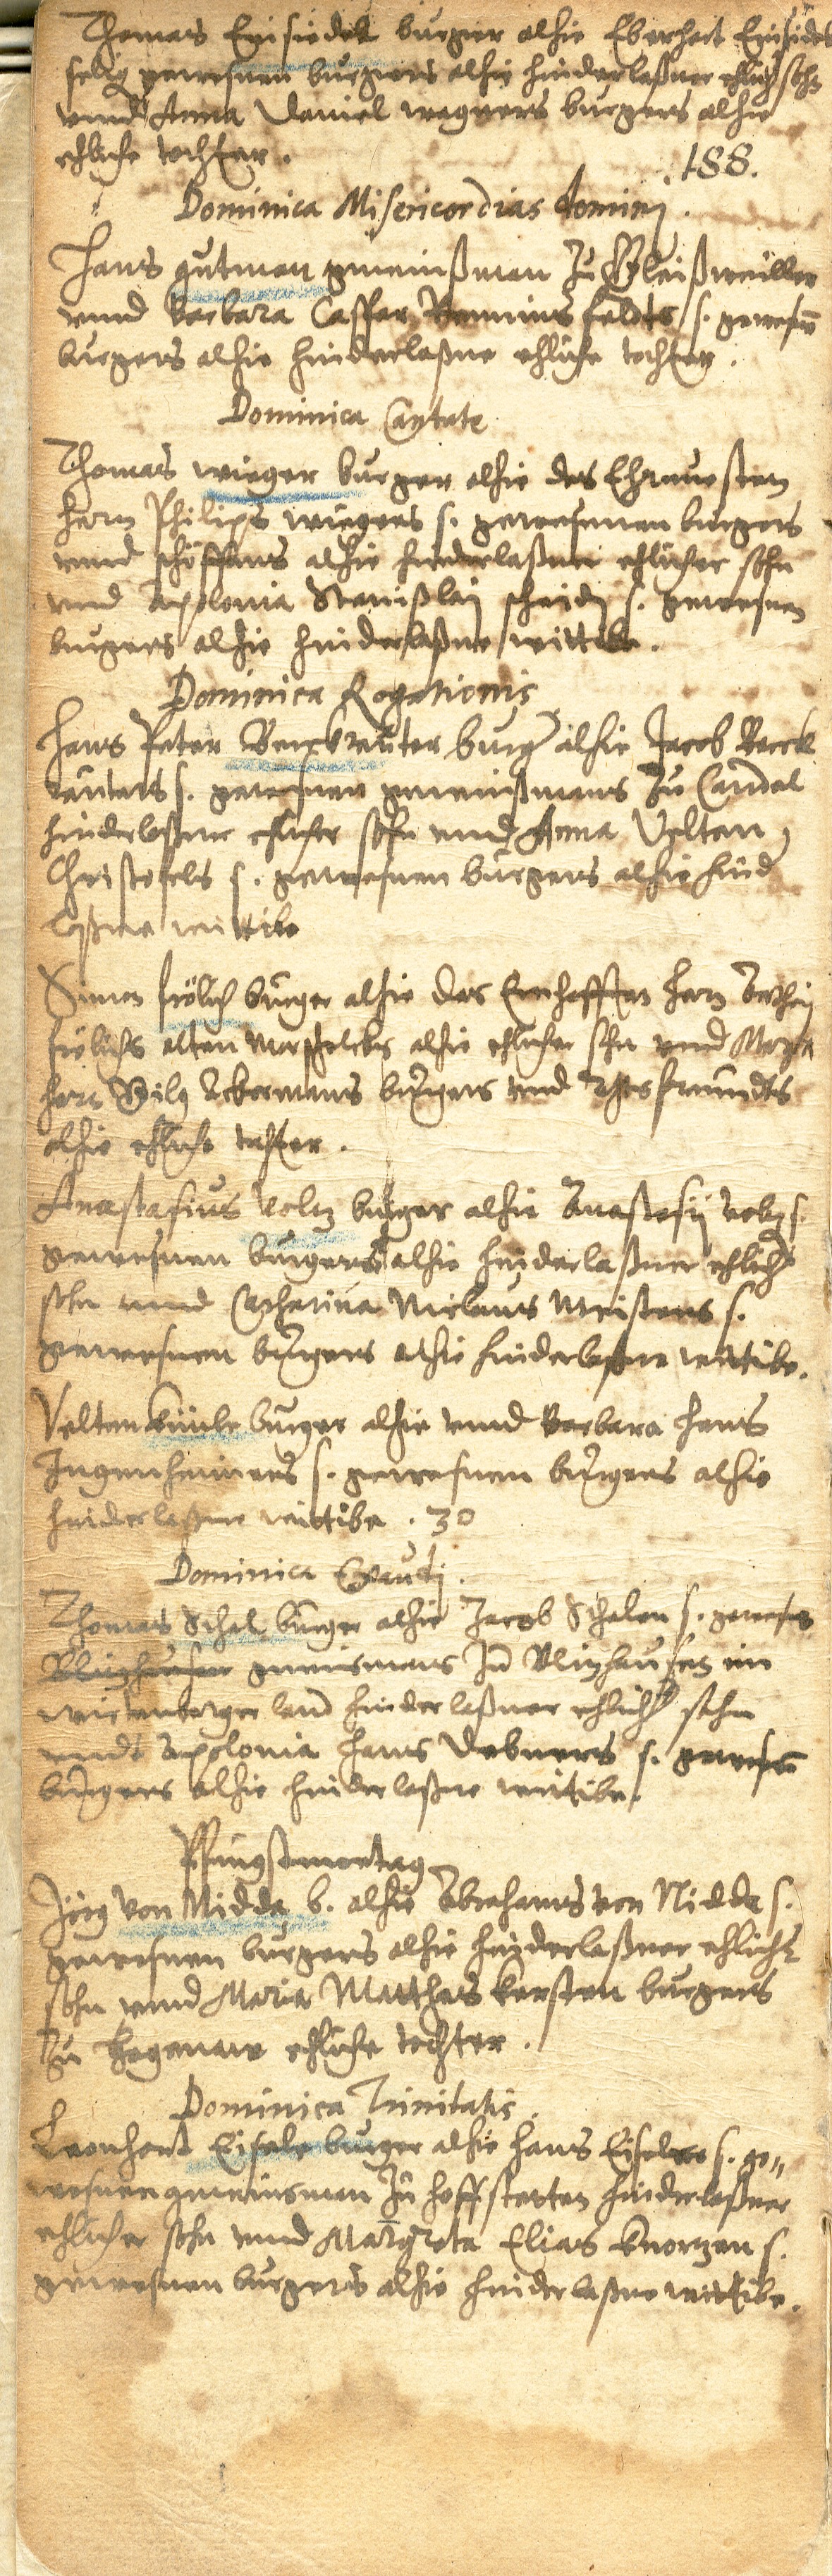 Thomas Einsidel burger alhie Eberhart Einsidels
selig gewesnen burgers alhie hinderlaßner ehlicher sohn
vnnd Anna Daniel wagners burgers alhie
ehliche tochter.
188.
Dominica Misericordias domini.
Hans gutman gmeinßman zu Gleißweiller
vnnd Barbara Casper s. gewesnen
burgers alhie hinderlaßne ehliche tochter.
Dominica Cantate
Thomas wieger burger alhie des Ehrnuesten
Herrn Philips wiegers s. gewesenen burgers
vnnd schöffens alhie hinderlaßner ehlicher sohn
vnd Apolonia Stanißlaij s. gewesnen
burgers alhie hinderlaßne wittibe.
Dominica Rogationis
Hans Peter burger alhie Jacob
s. gewesnen gmeinßmans zu Candel
hinderlaßner ehlicher sohn vnnd Anna Velten
Christofels s. gewesnen burgers alhie hinder
laßne wittibe
Simon frölich burger alhie des Ernhafften Herrn
frölichs alten alhie ehlicher sohn vnd Maria
Herrn Ackermans burgers vnd
alhie ehliche tochter.
Anastasius Voltz burger alhie Anastasij Voltz s.
gewesnen burgers alhie hinderlaßner ehlicher
sohn vnnd Catharina Niclaus Meisters s.
gewesnen burgers alhie hinderlaßne wittibe.
Velten burger alhie vnnd Barbara Hans
Ingenheimers s. gewesnen burgers alhie
hinderlaßne wittibe. 30
Dominica Exaudi.
Thomas Schal burger alhie Jacob Schalen s. gewesnen
gmeinsmans zu im
wirtenberger land hinderlaßner ehlicher sohn
vndt Apolonia Hans s. gewesnen
burgers alhie hinderlaßne wittibe.
Pfingstmontag
Jörg von Nidda b. alhie Abrahams von Nidda s.
gewesnen burgers alhie hinderlaßner ehlicher
sohn vnnd Maria Matthas kersten burgers
zu Hagenaw ehliche tochter.
Dominica Trinitatis.
Leonhart Eisele burger alhie Hans Eiselers s. ge„
wesnen gmeinsman zu hoffstetten hinderlaßner
ehlicher sohn vnnd Margreta Elias s.
gewesnen burgers alhie hinderlaßne wittibe.